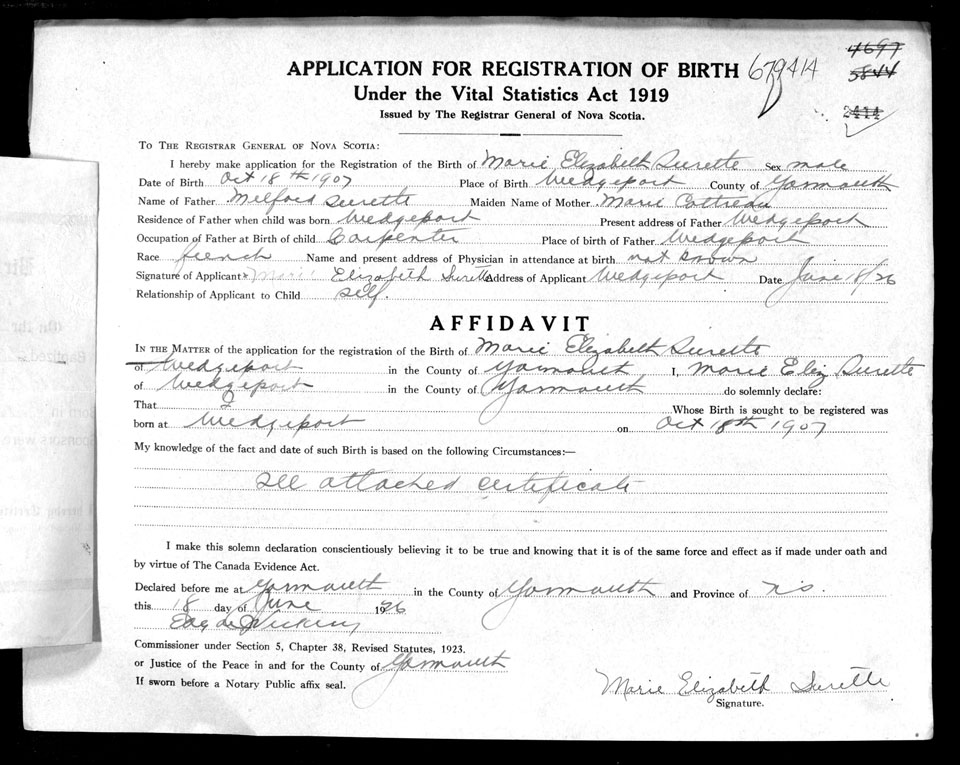 APPLICATION FOR REGISTRATION OF BIRTH 679414
4697
5844
2414
Under the Vital Statistics Act 1919
Issued by The Registrar General of Nova Scotia.
To The Registrar General of Nova Scotia:
I hereby make application for the Registration of the Birth of Marie Elizabeth Surette Sex male
Date of Birth Oct 18th 1907 Place of Birth Wedgeport County of Yarmouth
Name of Father Milford Surette Maiden Name of Mother Marie Cottreau
Residence of Father when child was born Wedgeport Present address of Father Wedgeport
Occupation of Father at Birth of child Carpenter Place of birth of Father Wedgeport
Race french Name and present address of Physician in attendance at birth not known
Signature of Applicant Marie Elizabeth Surette Address of Applicant Wedgeport Date June 18/26
Relationship of Applicant to Child self.
AFFIDAVIT
In the Matter of the application for the registration of the Birth of Marie Elizabeth Surette
of Wedgeport in the County of Yarmouth I, Marie Eliz Surette
of Wedgeport in the County of Yarmouth do solemnly declare:
That I Whose Birth is sought to be registered was
born at Wedgeport on Oct 18th 1907
My knowledge of the fact and date of such Birth is based on the following Circumstances:—
see attached certificate
I make this solemn declaration conscientiously believing it to be true and knowing that it is of the same force and effect as if made under oath and
by virtue of The Canada Evidence Act.
Declared before me at Yarmouth in the County of Yarmouth and Province of N.S.
this 18 day of June 1926
Commissioner under Section 5, Chapter 38, Revised Statutes, 1923.
or Justice of the Peace in and for the County of Yarmouth
If sworn before a Notary Public affix seal.
Marie Elizabeth Surette
Signature.